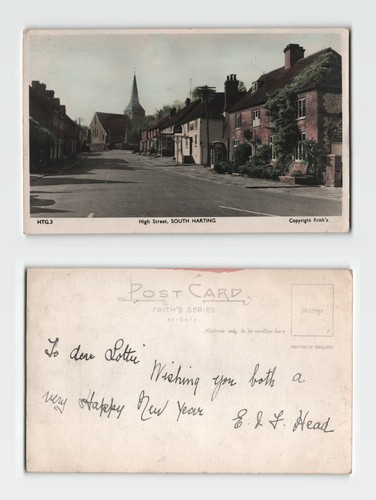 HTG.3 High Street, SOUTH HARTING Copyright Frith's
POST CARD
FRITH'S SERIES
REIGATE
Address only to be written here
Stamp
PRINTED IN ENGLAND
To dear Lottie
Wishing you both a
very Happy New Year
E. & F. Head